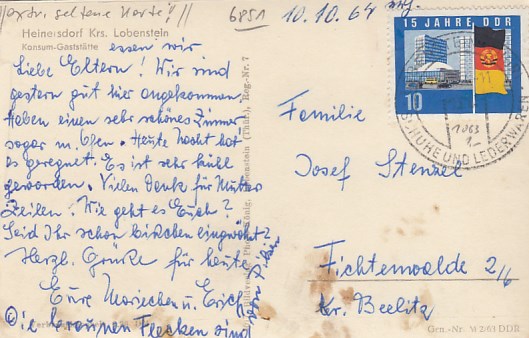 !!extr. seltene Karte!!
6851
10.10.64
Heinersdorf Krs. Lobenstein
Konsum-Gaststätte
essen wir
Liebe Eltern! Wir sind
gestern gut hier angekommen.
Haben einen sehr schönes Zimmer
sogar m. Ofen. Heute Nacht hat
es geregnet. Es ist sehr kühl
geworden. Vielen Dank für Mutter
Zeilen. Wie geht es Euch?
Seid Ihr schon bißchen eingewöhnt?
Herzl. Grüße für heute
Eure Mariechen u. Erich
Die braunen Flecken sind
von Pilzen
Lobenstein (Thür.) Reg.-Nr. 7
15 JAHRE DDR
10
SCHUHE UND LEDERWAREN
Familie
Josef Stenzel
Fichtenwalde 2/6
Kr. Beelitz
Gen.-Nr. M 2/63 DDR